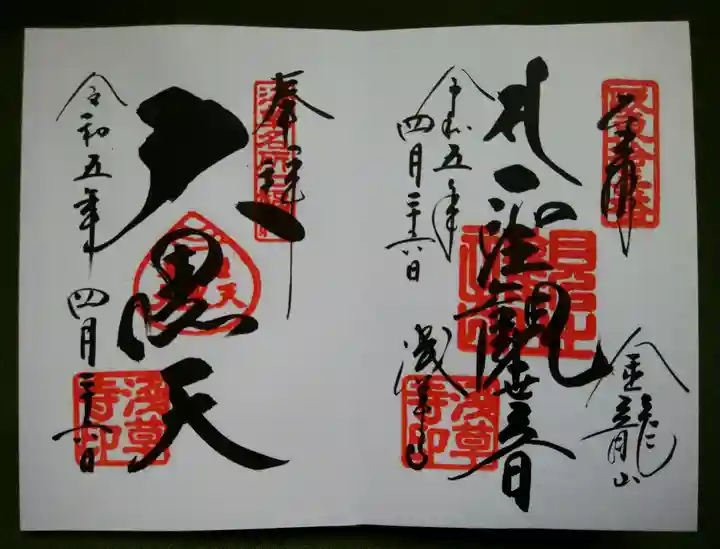 奉拝
聖観世音
金龍山
浅草寺
令和五年
四月二十六日
浅草寺印
奉拝
大黒天
令和五年
四月二十六日
浅草寺印